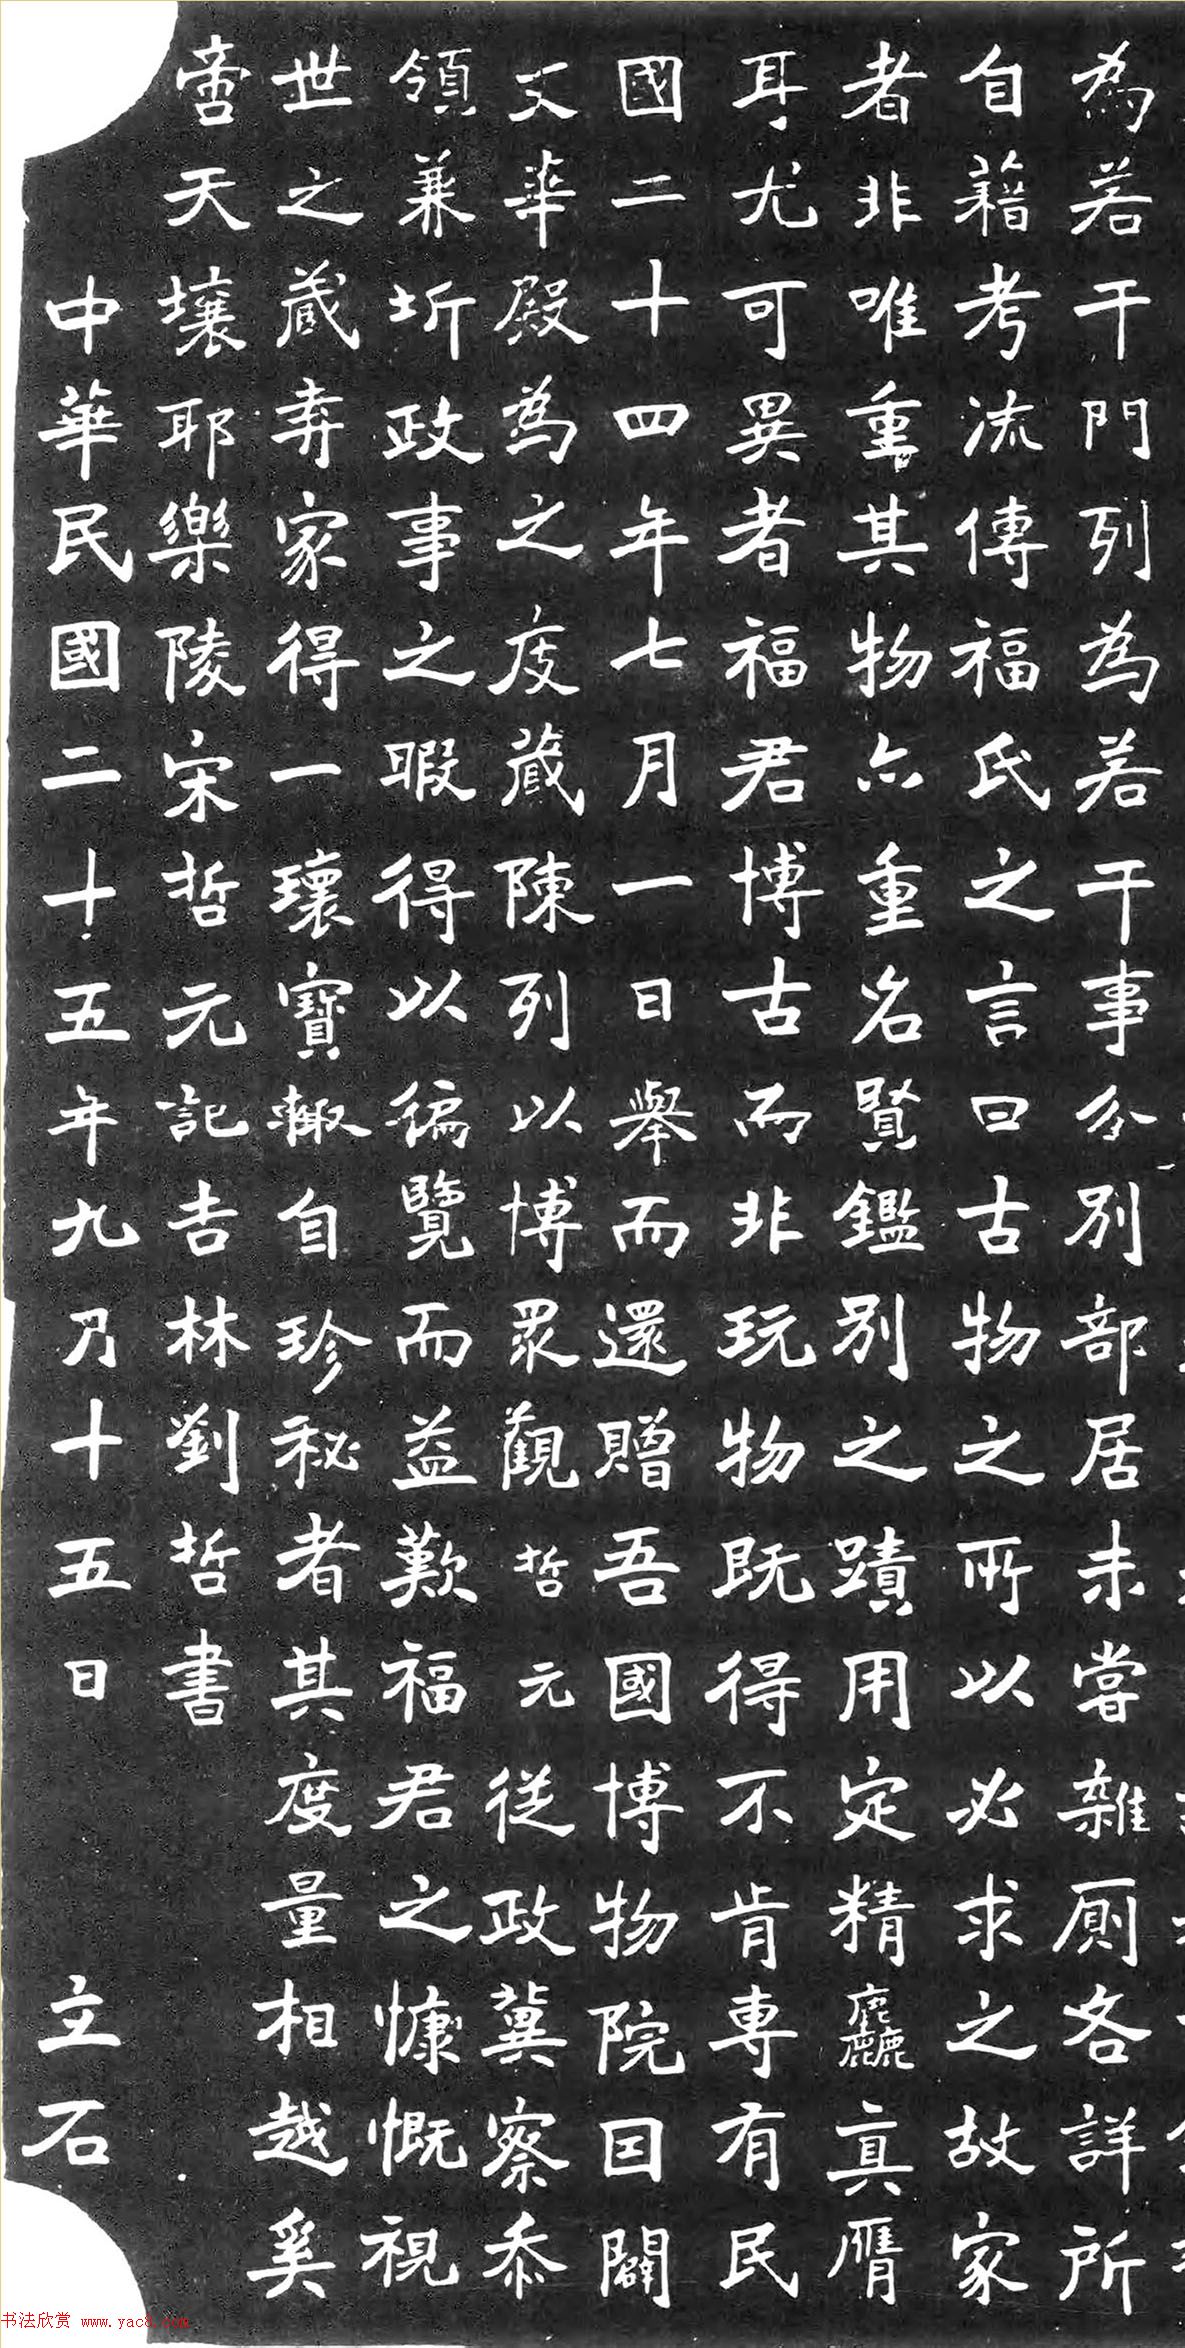 為若干門列為若干事分別部居未嘗雜厠各詳所
自藉考流傳福氏之言曰古物之所以必求之故家
者非唯重其物亦重名賢鑑別之蹟用定精麤真贗
耳尤可異者福君博古而非玩物既得不肯專有民
國二十四年七月一日舉而還贈吾國博物院因闢
文華殿為之庋藏陳列以博眾觀哲元從政冀察忝
領兼圻政事之暇得以徧覽而益歎福君之慷慨視
世之藏弆家得一瓌寶輒自珍秘者其度量相越奚
啻天壤耶樂陵宋哲元記吉林劉哲書
中華民國二十五年九月十五日 立石
书法欣赏 www.yac8.com